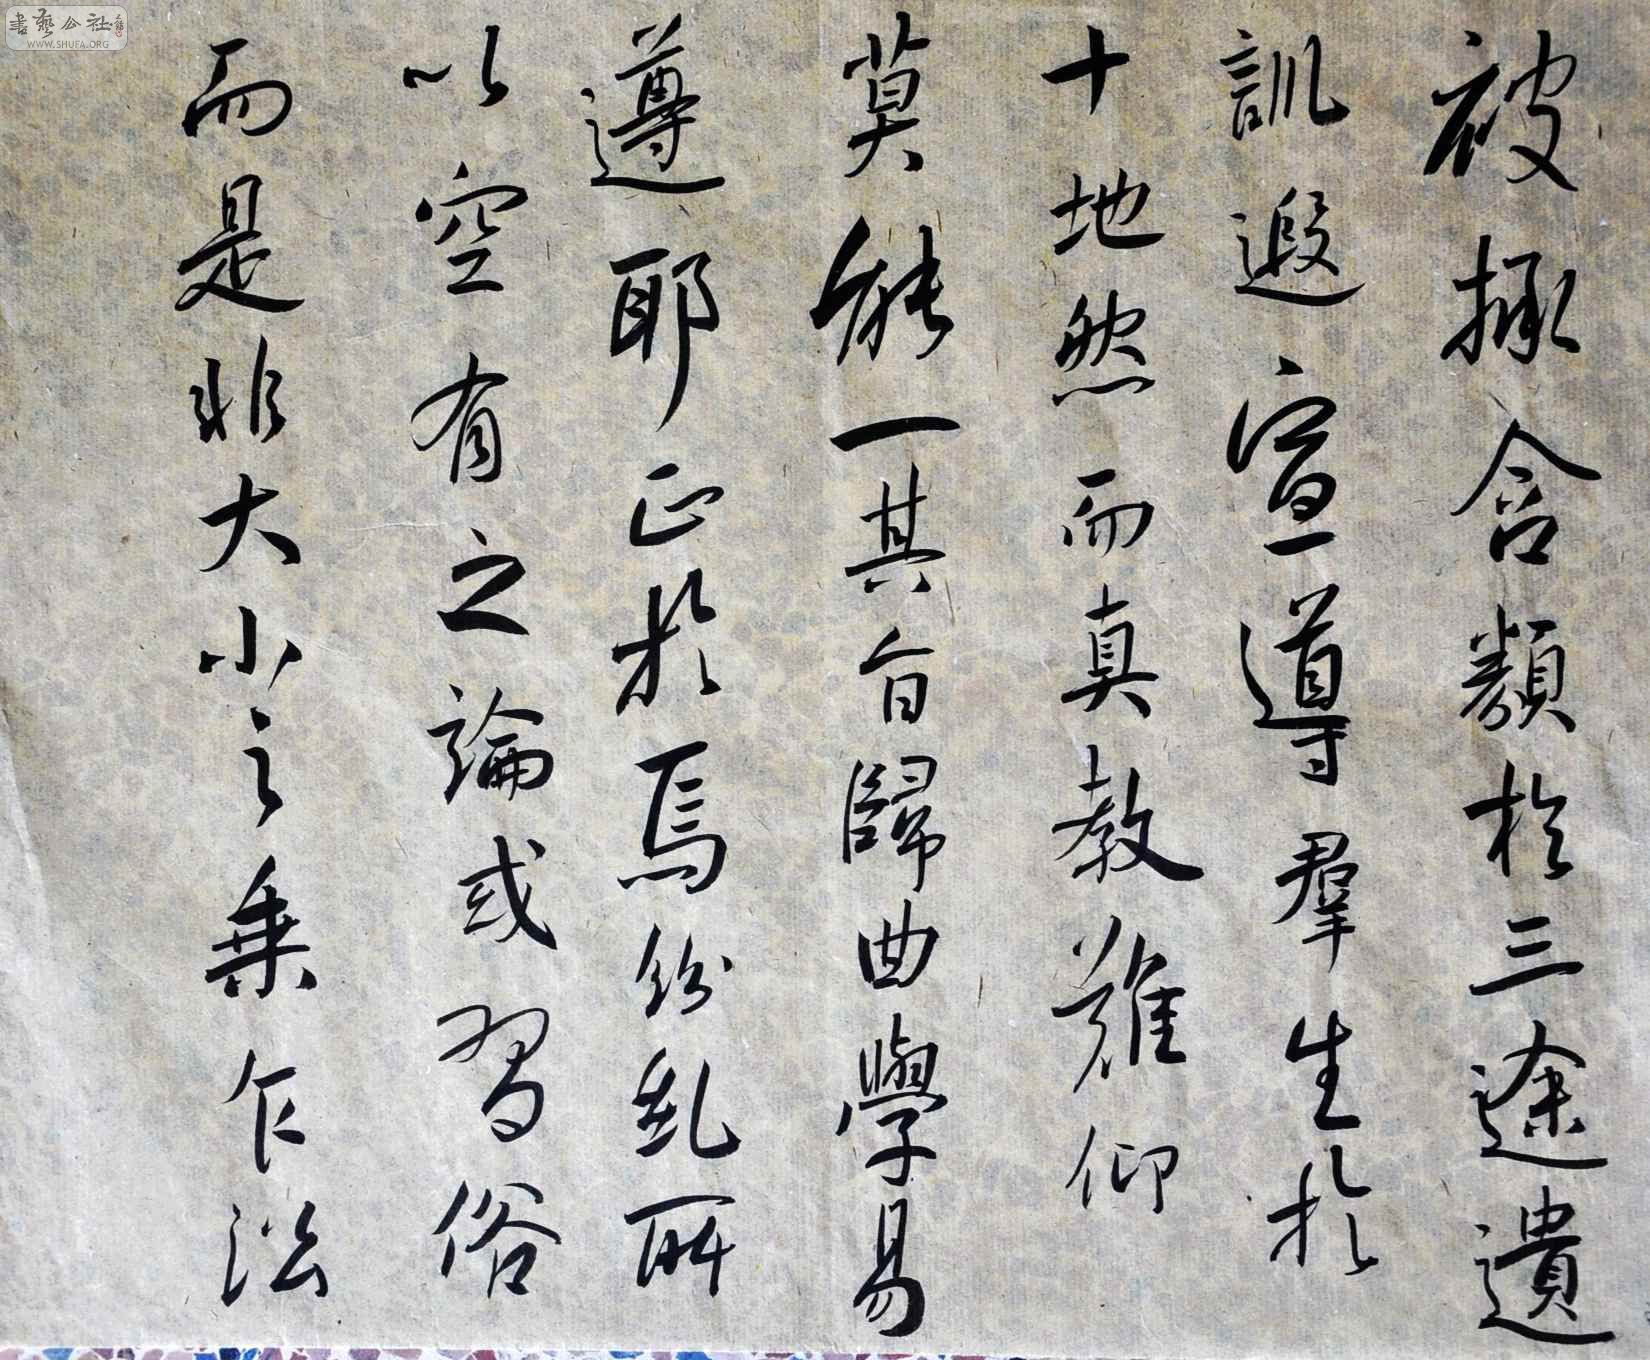 書藝公社
WWW.SHUFA.ORG
被拯含類於三途遺
訓遐宣導羣生於
十地然而真教難仰
莫能一其旨歸曲學易
遵耶正於焉紛糺所
以空有之論或習俗
而是非大小之乘乍沿